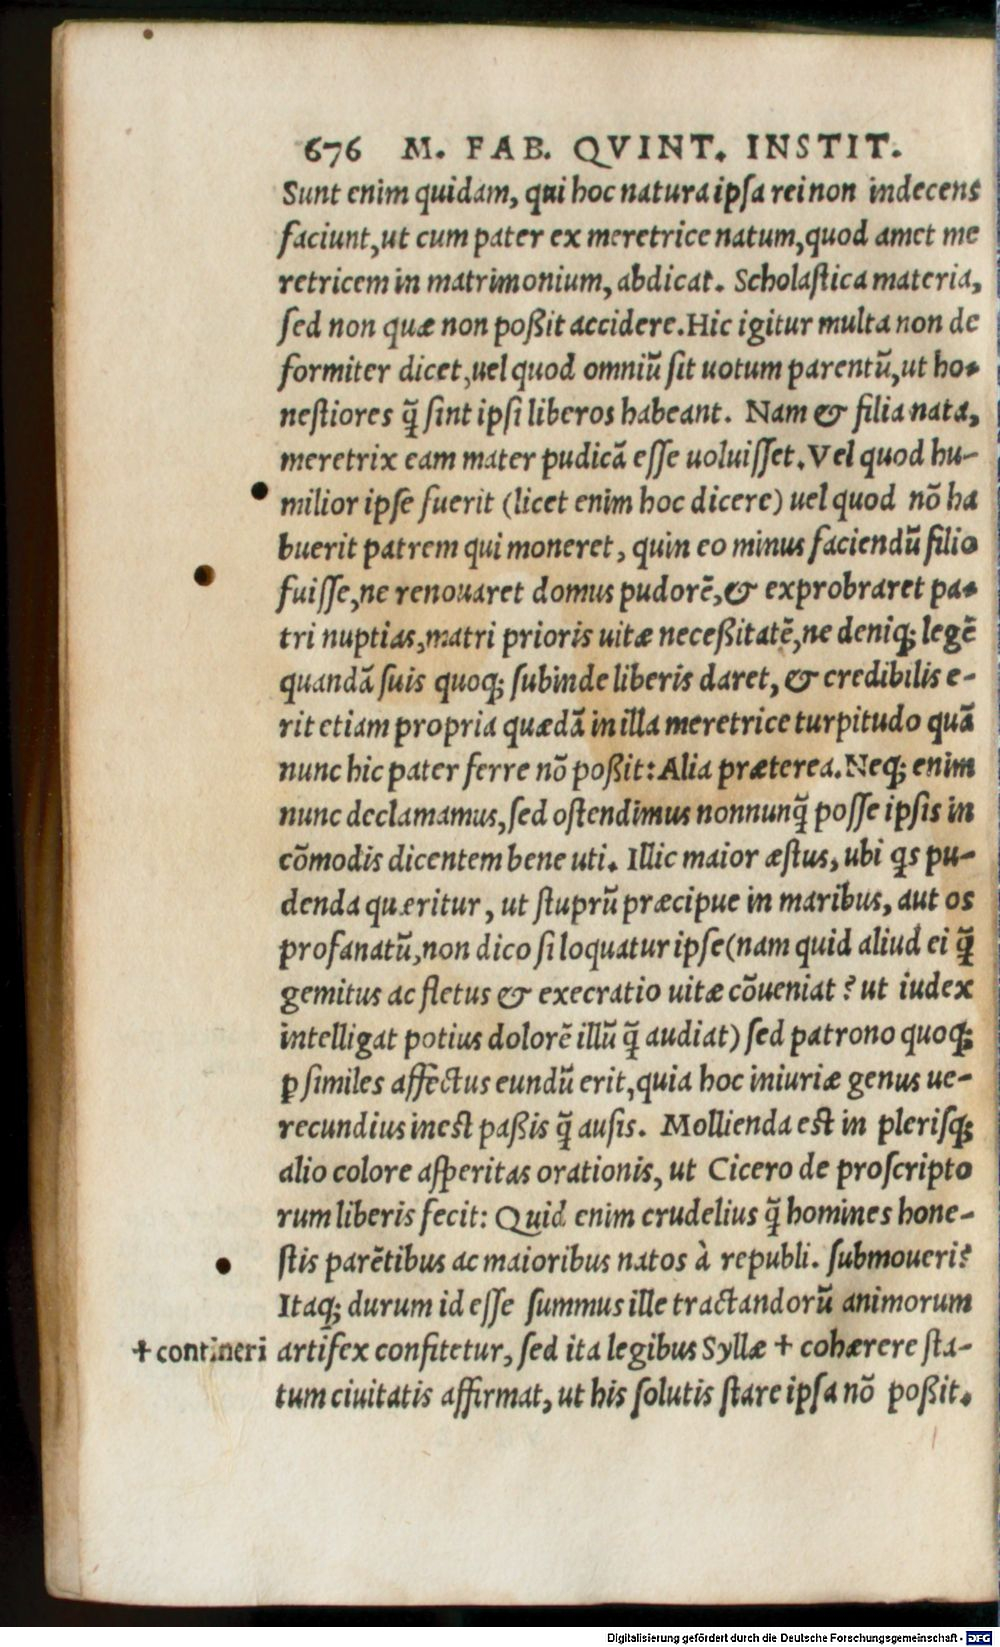 676 M. FAB. QVINT. INSTIT.
Sunt enim quidam, qui hoc natura ipſa rei non indecens
faciunt,ut cum pater ex meretrice natum,quod amet me
retricem in matrimonium, abdicat. Scholaſtica materia,
ſed non quæ non poßit accidere.Hic igitur multa non de
formiter dicet,uel quod omniū ſit uotum parentū,ut ho-
neſtiores q̃ ſint ipſi liberos habeant. Nam & filia nata,
meretrix eam mater pudicā eſſe uoluiſſet.Vel quod hu-
milior ipſe fuerit (licet enim hoc dicere) uel quod nō ha
buerit patrem qui moneret, quin eo minus faciendū filio
fuiſſe,ne renouaret domus pudorē,& exprobraret pa-
tri nuptias,matri prioris uitæ neceßitatē,ne deniq; legē
quandā ſuis quoq; ſubinde liberis daret, & credibilis e-
rit etiam propria quædā in illa meretrice turpitudo quā
nunc hic pater ferre nō poßit: Alia præterea.Neq; enim
nunc declamamus,ſed oſtendimus nonnunq̃ poſſe ipſis in
cōmodis dicentem bene uti. Illic maior æſtus, ubi qs pu-
denda quæritur, ut ſtuprū præcipue in maribus, aut os
profanatū,non dico ſi loquatur ipſe(nam quid aliud ei q̃
gemitus ac fletus & execratio uitæ cōueniat ? ut iudex
intelligat potius dolorē illū q̃ audiat) ſed patrono quoq;
ꝑ ſimiles affectus eundū erit,quia hoc iniuriæ genus ue-
recundius ineſt paßis q̃ auſis. Mollienda eſt in pleriſq;
alio colore aſperitas orationis, ut Cicero de proſcripto
rum liberis fecit: Quid enim crudelius q̃ homines hone-
ſtis parētibus ac maioribus natos à republi. ſubmoueri?
Itaq; durum id eſſe ſummus ille tractandorū animorum
artifex confitetur, ſed ita legibus Syllæ + cohærere ſta-
+ contineri
tum ciuitatis affirmat, ut his ſolutis ſtare ipſa nō poßit.
Digitalisierung gefördert durch die Deutsche Forschungsgemeinschaft - DFG